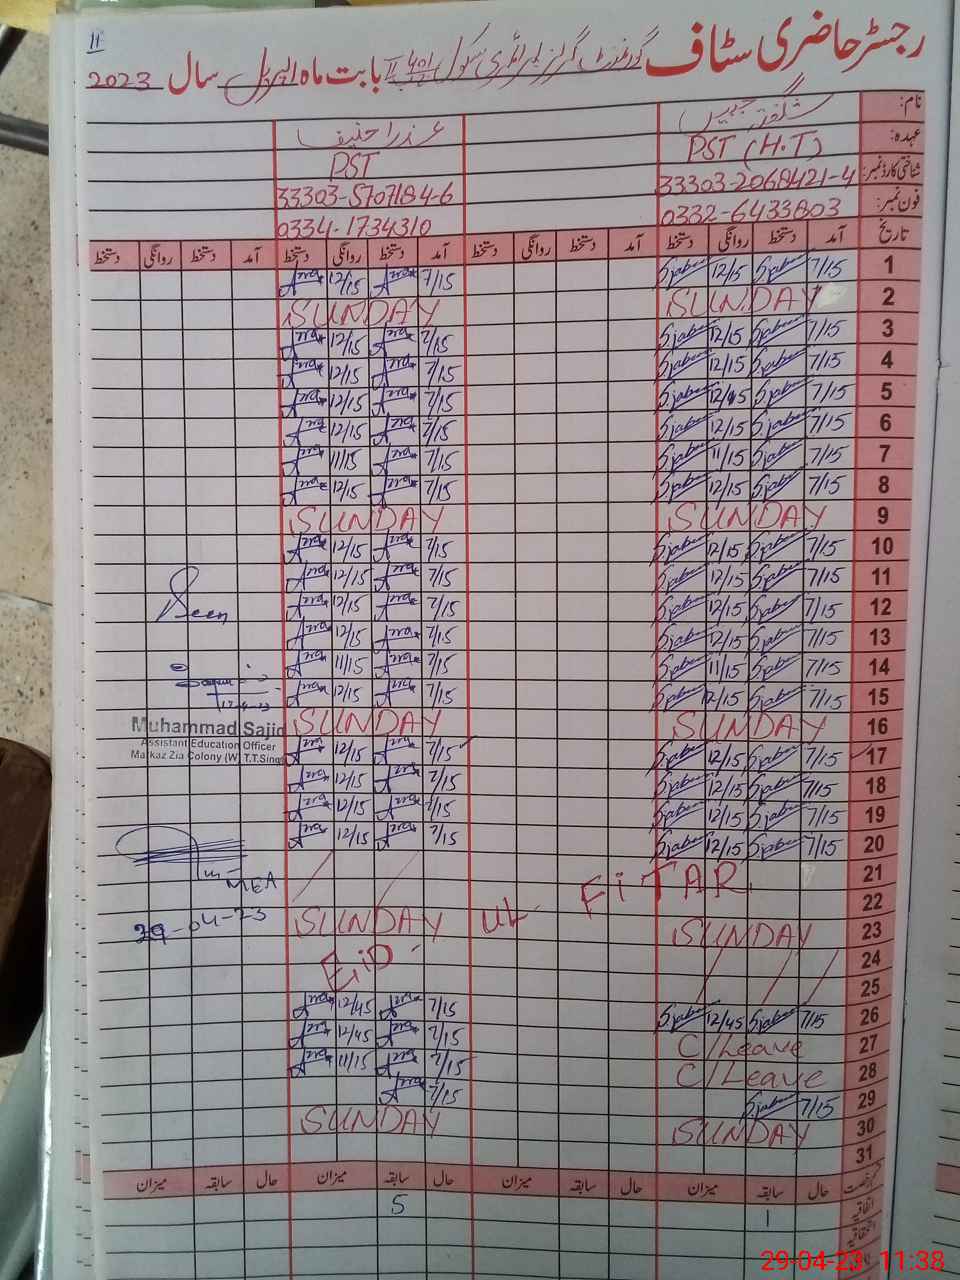 11
رجسٹر حاضری سٹاف گورنمنٹ گرلز پرائمری سکول بابت ماہ اپریل سال 2023
نام: شگفتہ جبیں عذرا حنیف
عہدہ: PST (H.T) PST
شناختی کارڈ نمبر: 33303-2068421-4 33303-5707184-6
فون نمبر: 0332-6433803 0334-1734310
تاریخ آمد دستخط روانگی دستخط آمد دستخط روانگی دستخط آمد دستخط روانگی دستخط آمد دستخط روانگی دستخط
1 7/15 Sjabeen 12/15 Sjabeen 7/15 12/15
2 SUNDAY SUNDAY
3 7/15 Sjabeen 12/15 Sjabeen 7/15 12/15
4 7/15 Sjabeen 12/15 Sjabeen 7/15 12/15
5 7/15 Sjabeen 12/15 Sjabeen 7/15 12/15
6 7/15 Sjabeen 12/15 Sjabeen 7/15 12/15
7 7/15 Sjabeen 11/15 Sjabeen 7/15 11/15
8 7/15 Sjabeen 12/15 Sjabeen 7/15 12/15
9 SUNDAY SUNDAY
10 7/15 Sjabeen 12/15 Sjabeen 7/15 12/15
11 7/15 Sjabeen 12/15 Sjabeen 7/15 12/15
12 7/15 Sjabeen 12/15 Sjabeen 7/15 12/15 Seen
13 7/15 Sjabeen 12/15 Sjabeen 7/15 12/15
14 7/15 Sjabeen 11/15 Sjabeen 7/15 11/15
15 7/15 Sjabeen 12/15 Sjabeen 7/15 12/15
16 SUNDAY SUNDAY
Muhammad Sajid
Assistant Education Officer
Markaz Zia Colony (W) T.T.Singh
17 7/15 Sjabeen 12/15 Sjabeen 7/15 12/15
18 7/15 Sjabeen 12/15 Sjabeen 7/15 12/15
19 7/15 Sjabeen 12/15 Sjabeen 7/15 12/15
20 7/15 Sjabeen 12/15 Sjabeen 7/15 12/15
21
MEA
22
29-04-23
EiD UL FiTAR
23 SUNDAY SUNDAY
24
25
26 7/15 Sjabeen 12/45 Sjabeen 7/15 12/45
27 C/Leave 7/15 12/45
28 C/Leave 7/15 11/15
29 7/15 Sjabeen 7/15
30 SUNDAY SUNDAY
31
حال سابقہ میزان حال سابقہ میزان حال سابقہ میزان حال سابقہ میزان
اتفاقیہ 1 5
29-04-23 11:38